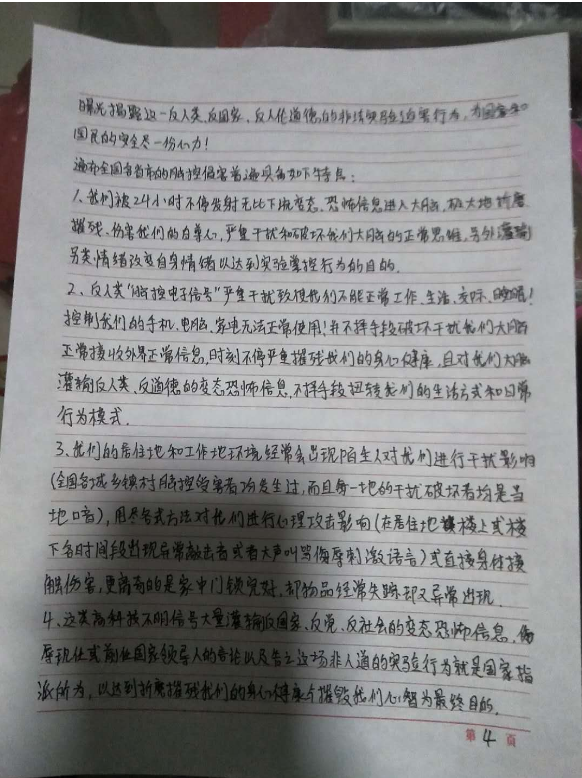 曝光揭露这一反人类、反国家、反人伦道德的非法实验迫害行为，为国家和
国民的安全尽一份心力！
遍布全国各省市的脑控受害者普遍具有如下特点：
1、我们被24小时不停发射无比下流变态、恐怖信息进入大脑，极大地折磨、
摧残、伤害我们的自尊心，严重干扰和破坏我们大脑的正常思维，另外灌输
另类情绪改变自身情绪以达到实验掌控行为的目的．
2、反人类“脑控电子信号”严重干扰致使我们不能正常工作、生活、交际、睡眠！
控制我们的手机、电脑、家电无法正常使用！并不择手段破坏干扰我们大脑
正常接收外界正常信息，时刻不停严重摧残我们的身心健康，且对我们大脑
灌输反人类、反道德的变态恐怖信息，不择手段扭转我们的生活方式和日常
行为模式．
3、我们的居住地和工作地环境经常会出现陌生人对我们进行干扰影响
（全国各城乡镇村脑控受害者均发生过，而且每一地的干扰破坏者均是当
地口音），用尽各式方法对我们进行心理攻击影响（在居住地楼上或楼
下多时间段出现异常敲击者或者大声叫骂侮辱刺激语言）或直接身体接
触伤害，更离奇的是家中门锁完好，却物品经常失踪却又异常出现．
4、这类高科技不明信号大量灌输反国家、反党、反社会的变态恐怖信息，侮
辱现任或前任国家领导人的言论以及告之这场非人道的实验行为就是国家指
派所为，以达到折磨摧残我们的身心健康与摧毁我们心智为最终目的．
第 4 页